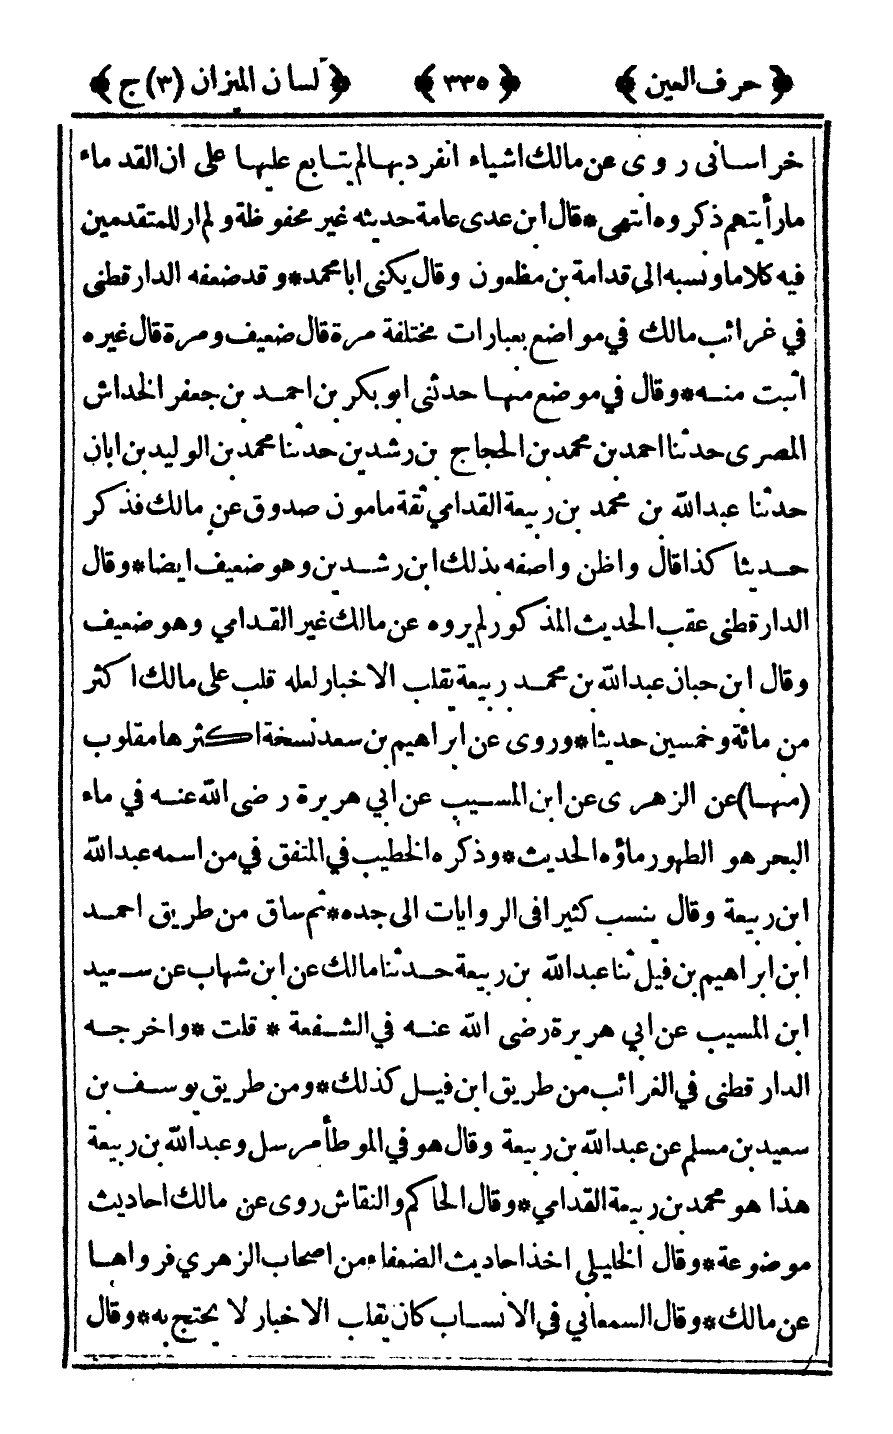 ﴿ حرف العين ﴾ ﴿ ٣٣٥ ﴾ ﴿ لسان الميزان (٣) ج ﴾
خراسانى روى عن مالك اشياء انفرد بها لم يتابع عليها على ان القدماء
ما رأيتهم ذكروه انتهى * قال ابن عدى عامة حديثه غير محفوظة ولم ار للمتقدمين
فيه كلاما ونسبه الى قدامة بن مظعون وقال يكنى ابا محمد * وقد ضعفه الدارقطنى
في غرائب مالك في مواضع بعبارات مختلفة مرة قال ضعيف ومرة قال غيره
اثبت منه * وقال في موضع منها حدثنى ابو بكر بن احمد بن جعفر الخداش
المصرى حدثنا احمد بن محمد بن الحجاج بن رشدين حدثنا محمد بن الوليد بن ابان
حدثنا عبدالله بن محمد بن ربيعة القدامي ثقة مامون صدوق عن مالك فذكر
حديثا كذا قال واظن واصفه بذلك ابن رشدين وهو ضعيف ايضا * وقال
الدارقطنى عقب الحديث المذكور لم يروه عن مالك غير القدامي وهو ضعيف
وقال ابن حبان عبدالله بن محمد ربيعة يقلب الاخبار لعله قلب على مالك اكثر
من مائة وخمسين حديثا * وروى عن ابراهيم بن سعد نسخة اكثرها مقلوب
(منها) عن الزهرى عن ابن المسيب عن ابي هريرة رضى الله عنه في ماء
البحر هو الطهور ماؤه الحديث * وذكره الخطيب في المتفق في من اسمه عبدالله
ابن ربيعة وقال ينسب كثيرا فى الروايات الى جده * ثم ساق من طريق احمد
ابن ابراهيم بن فيل ثنا عبدالله بن ربيعة حدثنا مالك عن ابن شهاب عن سعيد
ابن المسيب عن ابي هريرة رضى الله عنه في الشفعة * قلت * واخرجه
الدارقطنى في الغرائب من طريق ابن فيل كذلك * ومن طريق يوسف بن
سعيد بن مسلم عن عبدالله بن ربيعة وقال هو في الموطأ مرسل وعبدالله بن ربيعة
هذا هو محمد بن ربيعة القدامي * وقال الحاكم والنقاش روى عن مالك احاديث
موضوعة * وقال الخليلي اخذ احاديث الضعفاء من اصحاب الزهري فرواها
عن مالك * وقال السمعاني في الانساب كان يقلب الاخبار لا يحتج به * وقال